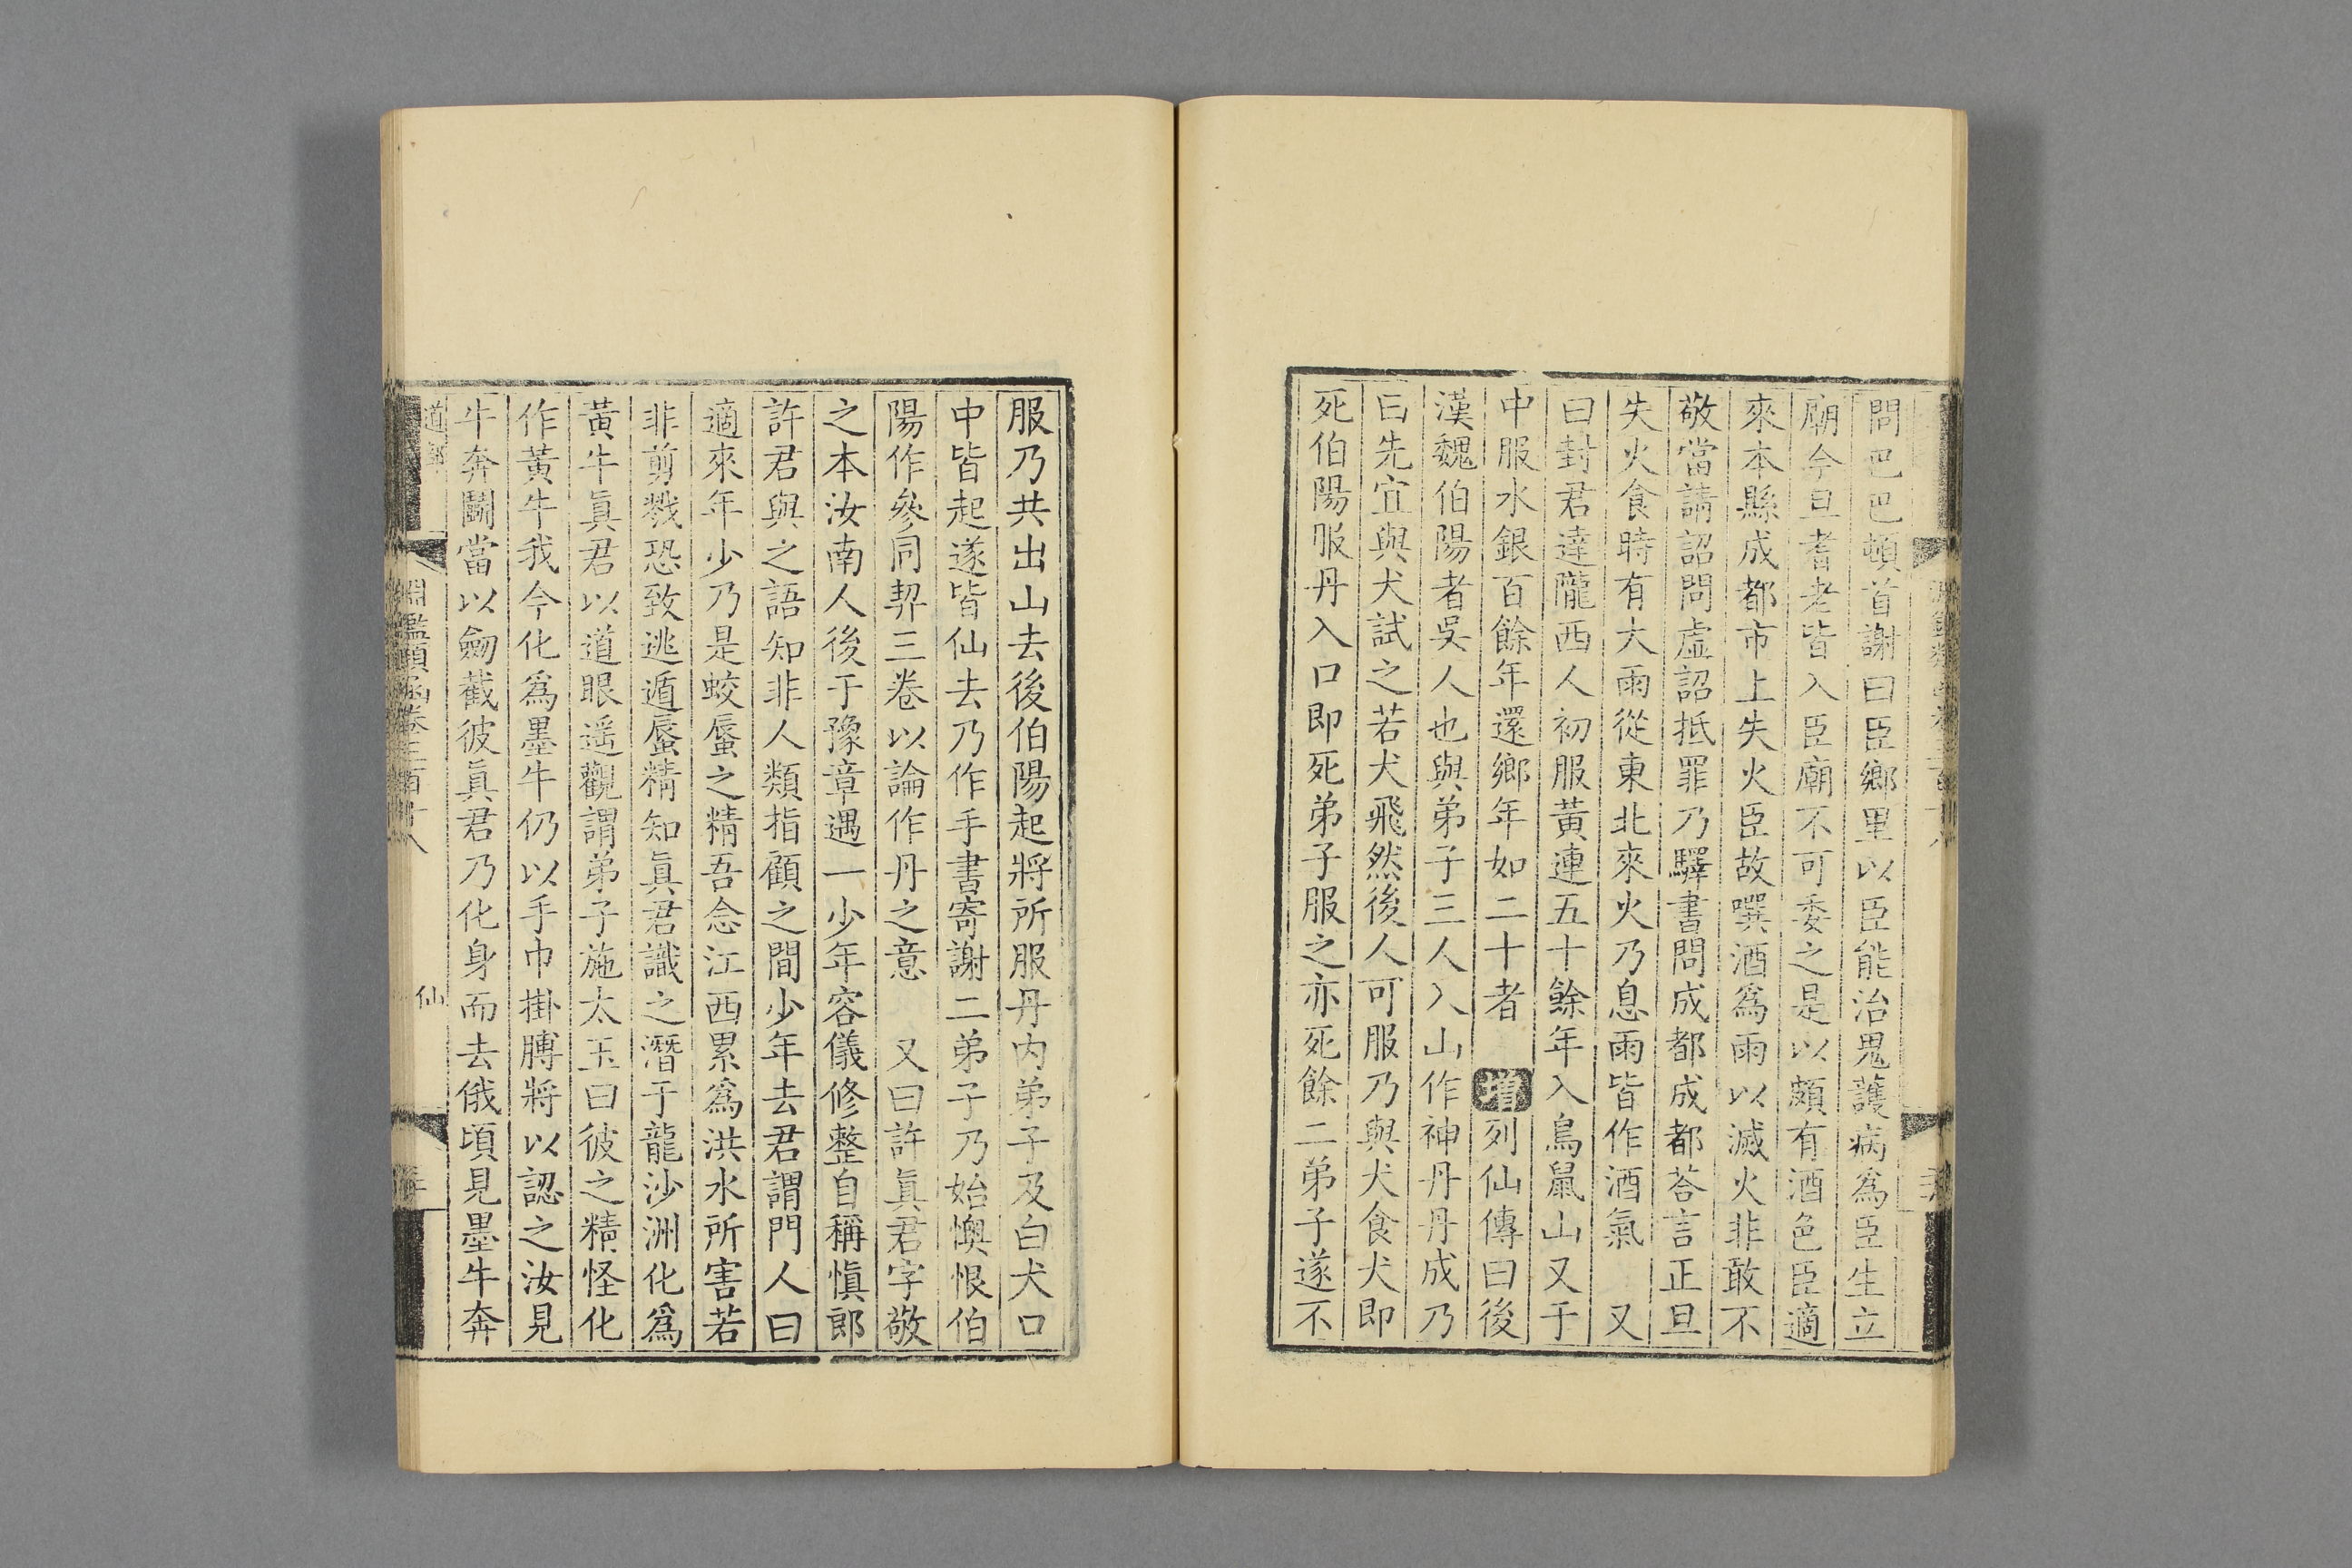 問巴巴頓首謝曰臣鄉里以臣能治鬼護病爲臣生立
廟今旦耆老皆入臣廟不可委之是以頗有酒色臣適
來本縣成都市上失火臣故噀酒爲雨以滅火非敢不
敬當請詔問虛詔抵罪乃驛書問成都成都荅言正旦
失火食時有大雨從東北來火乃息雨皆作酒氣　又
曰封君達隴西人初服黃連五十餘年入鳥鼠山又于
中服水銀百餘年還鄉年如二十者　增列仙傳曰後
漢魏伯陽者吳人也與弟子三人入山作神丹丹成乃
曰先宜與犬試之若犬飛然後人可服乃與犬食犬即
死伯陽服丹入口即死弟子服之亦死餘二弟子遂不
服乃共出山去後伯陽起將所服丹內弟子及白犬口
中皆起遂皆仙去乃作手書寄謝二弟子乃始懊恨伯
陽作參同契三卷以論作丹之意　又曰許眞君字敬
之本汝南人後于豫章遇一少年容儀修整自稱愼郎
許君與之語知非人類指顧之間少年去君謂門人曰
適來年少乃是蛟蜃之精吾念江西累爲洪水所害若
非剪戮恐致逃遁蜃精知眞君識之潛于龍沙洲化爲
黃牛眞君以道眼遥觀謂弟子施太玉曰彼之精怪化
作黃牛我今化爲墨牛仍以手巾掛膊將以認之汝見
牛奔鬭當以劒截彼眞君乃化身而去俄頃見墨牛奔
道部
淵鑑類函卷三百十八
仙